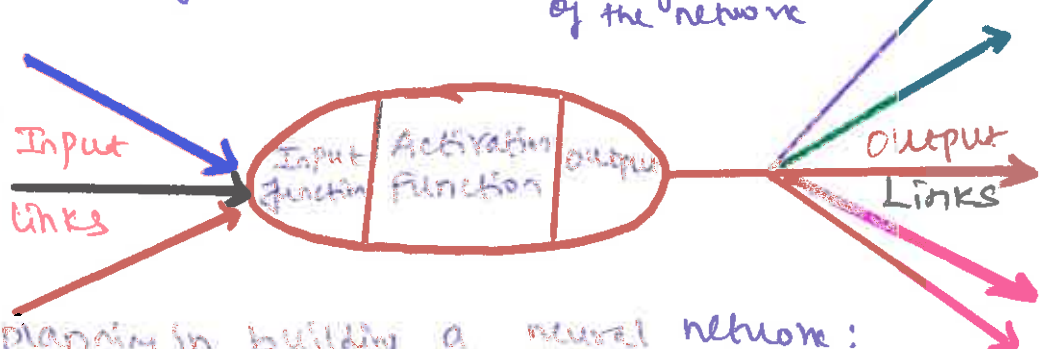 of the network
Input
links
Input
function
Activation
Function
output
output
Links
planning in building a neural network: